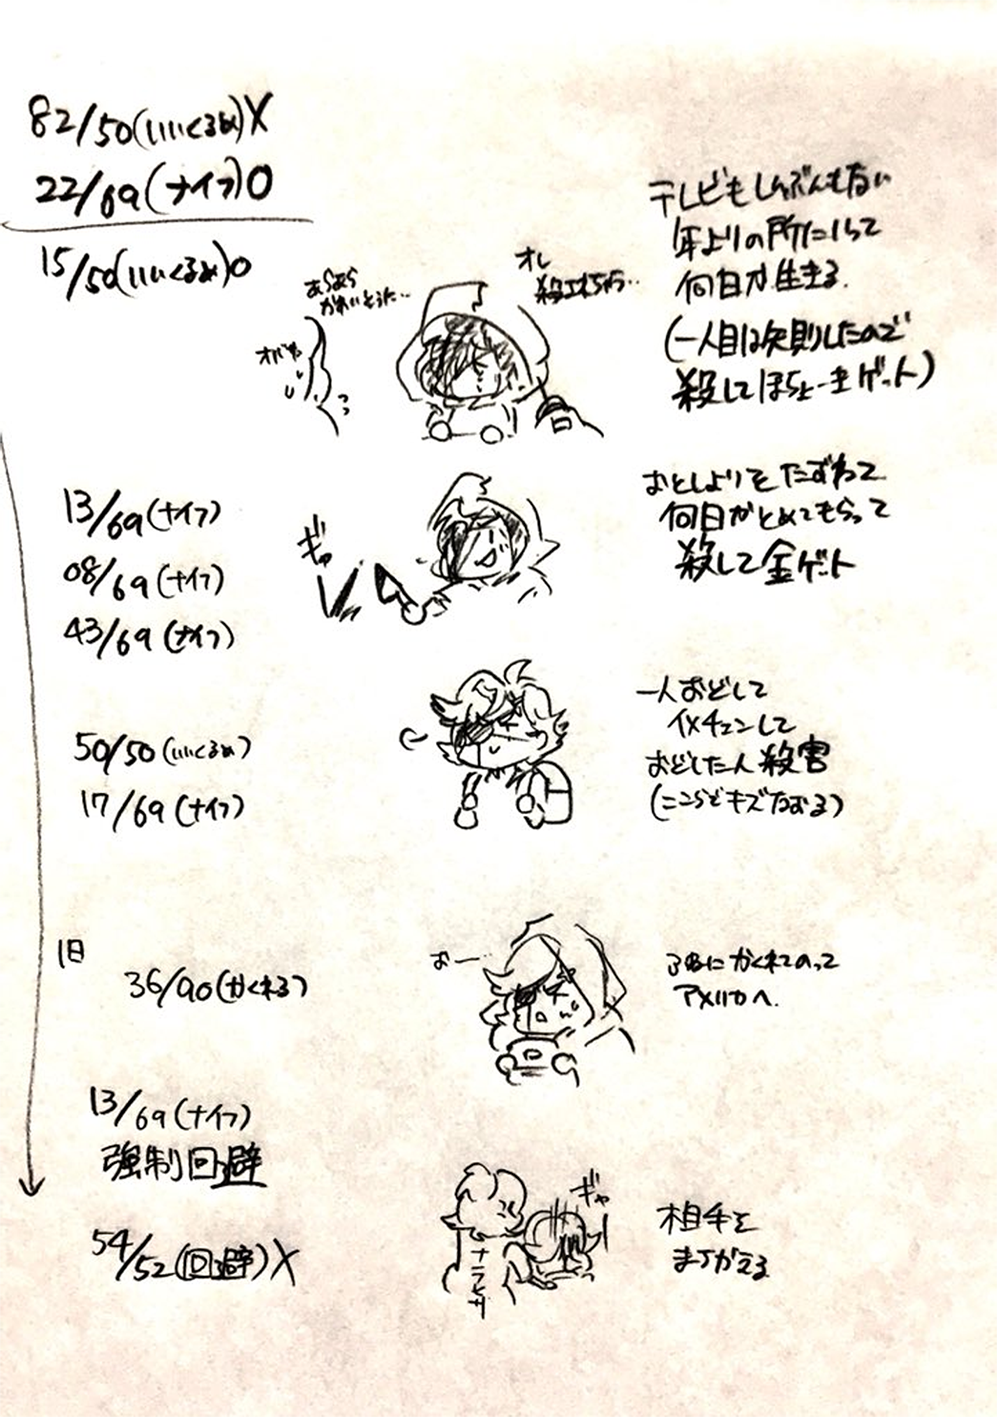 82/50(いいくるめ)X
22/69(ナイフ)O
15/50(いいくるめ)O
あらあら
かわいそうに…
オレ
殺されちゃう…
テレビもしんぶんもない
年よりの所にいって
何日か生きる.
(一人目は失敗したので
殺してほちょーきゲット)
13/69(ナイフ)
08/69(ナイフ)
43/69(ナイフ)
ギャ
おとしよりをたずねて
何日かとめてもらって
殺して金ゲット
50/50(いいくるめ)
17/69(ナイフ)
一人おどして
イメチェンして
おどした人殺害
(ここらでキズなおる)
1日
36/90(かくれる)
おー…
にかくれてのって
アメリカへ.
13/69(ナイフ)
強制回避
54/52(回避)X
ギャー
相手を
まちがえる